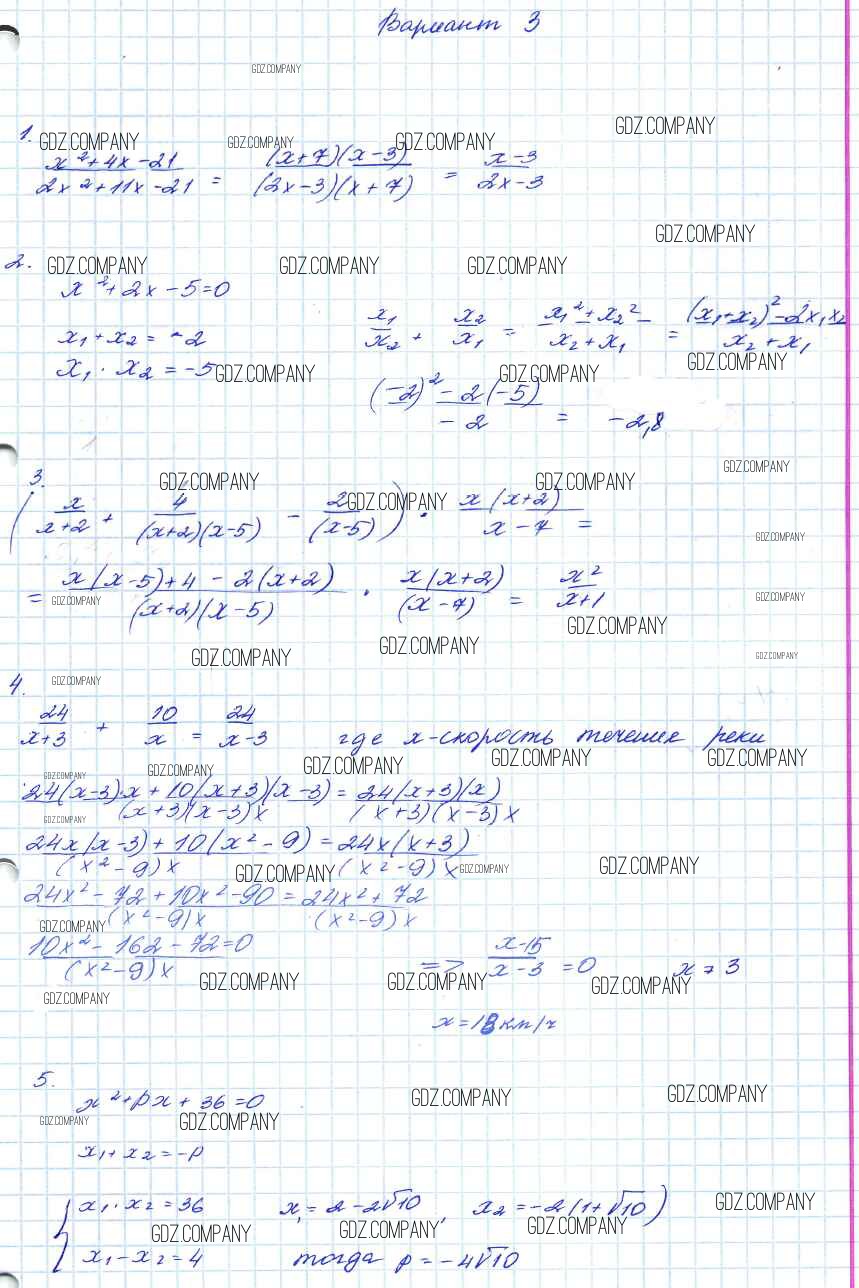 Вариант 3
GDZ.COMPANY
1. GDZ.COMPANY GDZ.COMPANY GDZ.COMPANY GDZ.COMPANY
(x²+4x-21)/(2x²+11x-21) = ((x+7)(x-3))/((2x-3)(x+7)) = (x-3)/(2x-3)
GDZ.COMPANY
2. GDZ.COMPANY GDZ.COMPANY GDZ.COMPANY
x²+2x-5=0
x₁+x₂=-2 x₁/x₂ + x₂/x₁ = (x₁²+x₂²)/(x₂+x₁) = ((x₁+x₂)²-2x₁x₂)/(x₂+x₁)
x₁·x₂=-5 GDZ.COMPANY GDZ.COMPANY GDZ.COMPANY
((-2)²-2(-5))/(-2) = -2,8
GDZ.COMPANY
3. GDZ.COMPANY GDZ.COMPANY
(x/(x+2) + 4/((x+2)(x-5)) - 2/(x-5)) · (x(x+2))/(x-7) =
GDZ.COMPANY GDZ.COMPANY
= (x(x-5)+4-2(x+2))/((x+2)(x-5)) · (x(x+2))/(x-7) = x²/(x+1)
GDZ.COMPANY GDZ.COMPANY GDZ.COMPANY
GDZ.COMPANY GDZ.COMPANY GDZ.COMPANY
4. GDZ.COMPANY
24/(x+3) + 10/x = 24/(x-3) где x-скорость течения реки
GDZ.COMPANY GDZ.COMPANY GDZ.COMPANY GDZ.COMPANY GDZ.COMPANY
(24(x-3)x+10(x+3)(x-3))/((x+3)(x-3)x) = (24(x+3)(x))/((x+3)(x-3)x)
GDZ.COMPANY
(24x(x-3)+10(x²-9))/((x²-9)x) = (24x(x+3))/((x²-9)x)
GDZ.COMPANY GDZ.COMPANY GDZ.COMPANY
(24x²-72+10x²-90)/((x²-9)x) = (24x²+72)/((x²-9)x)
GDZ.COMPANY
(10x²-162-72=0)/((x²-9)x) => (x-15)/(x-3) = 0 x ≠ 3
GDZ.COMPANY GDZ.COMPANY GDZ.COMPANY GDZ.COMPANY
x=18км/ч
5.
x²+px+36=0 GDZ.COMPANY GDZ.COMPANY
GDZ.COMPANY GDZ.COMPANY
x₁+x₂=-p
{ x₁·x₂=36 x₁=2-2√10, x₂=-2(1+√10) GDZ.COMPANY
GDZ.COMPANY GDZ.COMPANY GDZ.COMPANY
x₁-x₂=4 тогда p=-4√10